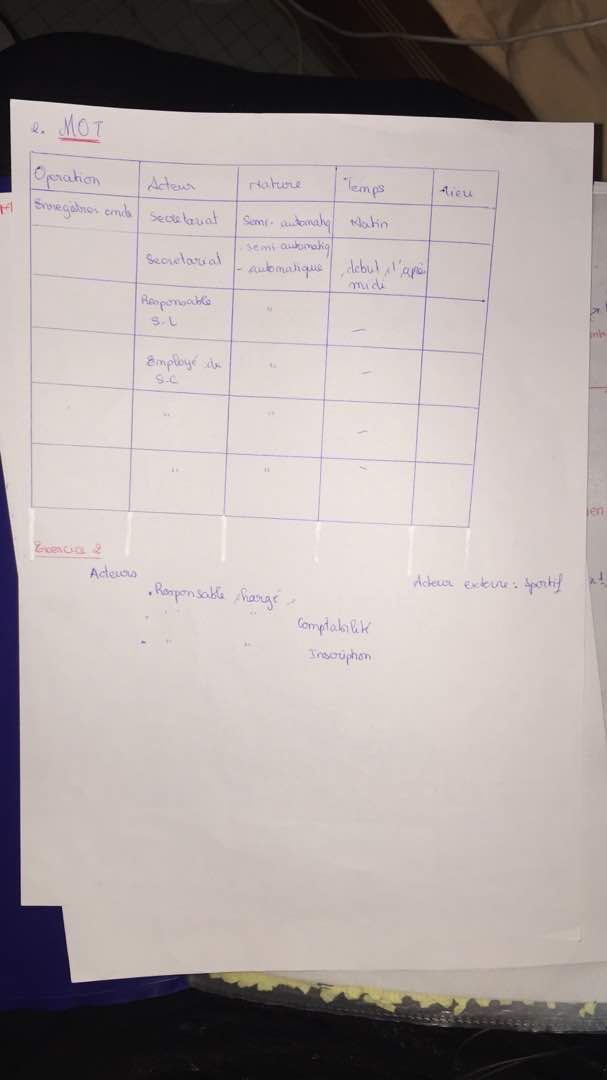 2. MOT
Operation Acteur Nature Temps Lieu
Enregistrer cmde Secretariat Semi-automatiq Matin
Secretariat - semi-automatiq
- automatique début d'apé
midi
Responsable " —
S.L
Employé de " —
S.C
" " —
" " —
Exercice 2
Acteurs Acteur externe : Sportif
. Responsable chargé
. " " Comptabilité
- " " Inscription